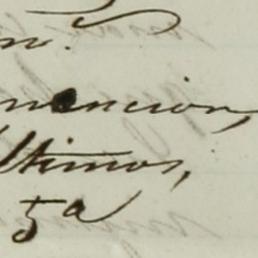 n.
mencion,
ltimos,
5a